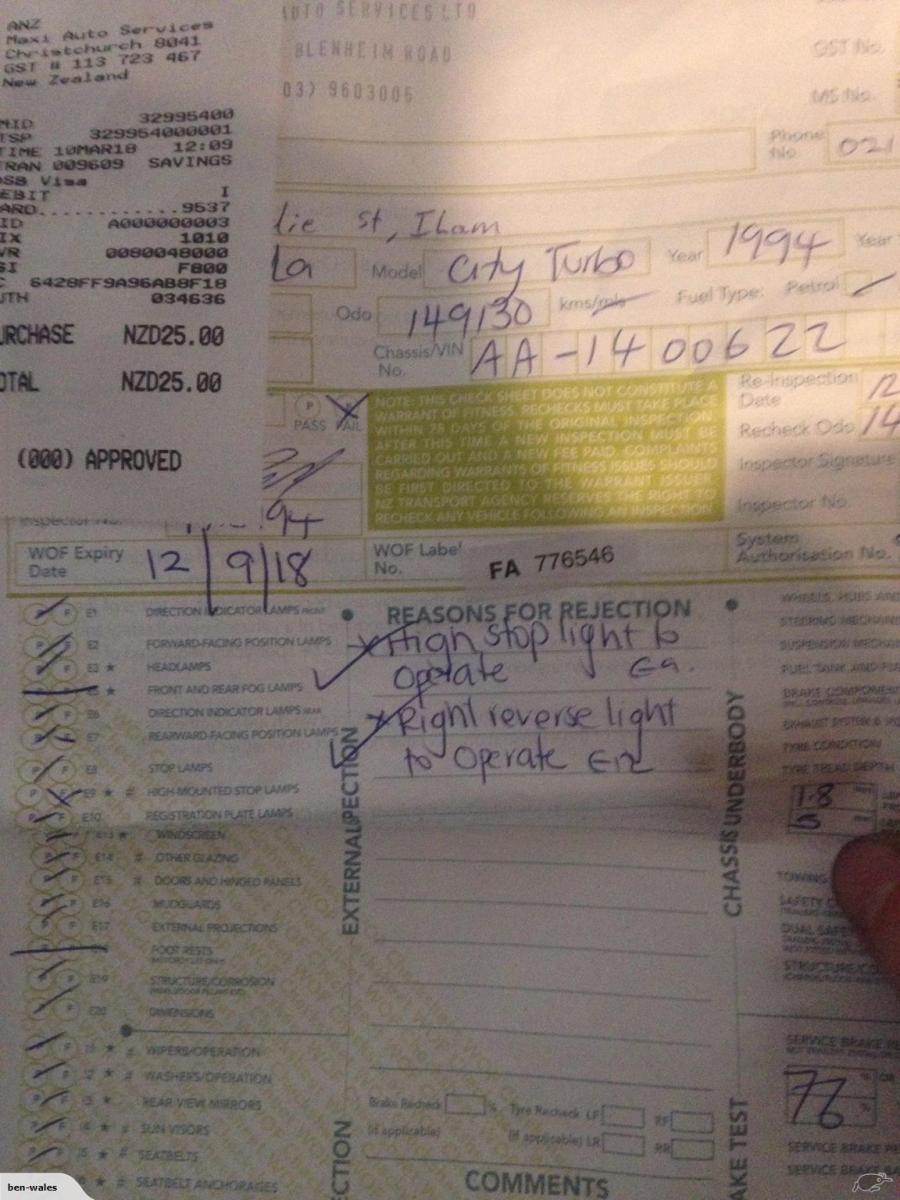 ANZ
Maxi Auto Services
Christchurch 8041
GST # 113 723 467
New Zealand
MID 32995400
TSP 329954000001
TIME 10MAR18 12:09
TRAN 009609 SAVINGS
Visa
DEBIT I
CARD............9537
ID A000000003
1010
0080048000
F800
6428FF9A96AB8F18
AUTH 034636
PURCHASE NZD25.00
TOTAL NZD25.00
(000) APPROVED
AUTO SERVICES LTD
BLENHEIM ROAD
03) 9603005
GST No.
MS No.
Phone No. 021
lie st, Ilam
la Model City Turbo Year 1994 Year
Odo 149130 kms/mls Fuel Type: Petrol
Chassis/VIN No. AA-1400622
PASS FAIL
NOTE: THIS CHECK SHEET DOES NOT CONSTITUTE A
WARRANT OF FITNESS. RECHECKS MUST TAKE PLACE
WITHIN 28 DAYS OF THE ORIGINAL INSPECTION
AFTER THIS TIME A NEW INSPECTION MUST BE
CARRIED OUT AND A NEW FEE PAID. COMPLAINTS
REGARDING WARRANTS OF FITNESS ISSUES SHOULD
BE FIRST DIRECTED TO THE WARRANT ISSUER.
NZ TRANSPORT AGENCY RESERVES THE RIGHT TO
RECHECK ANY VEHICLE FOLLOWING AN INSPECTION
Re-Inspection Date 12
Recheck Odo 14
Inspector Signature
Inspector No
Inspector No. 94
WOF Expiry Date 12/9/18
WOF Label No. FA 776546
System Authorisation No.
P F E1 DIRECTION INDICATOR LAMPS FRONT
P F E2 FORWARD-FACING POSITION LAMPS
P F E3 * HEADLAMPS
* FRONT AND REAR FOG LAMPS
P F E6 DIRECTION INDICATOR LAMPS REAR
P F E7 REARWARD-FACING POSITION LAMPS
P F E8 STOP LAMPS
P F E9 * # HIGH-MOUNTED STOP LAMPS
P F E10 REGISTRATION PLATE LAMPS
E13 * WINDSCREEN
P F E14 # OTHER GLAZING
P F E15 # DOORS AND HINGED PANELS
P F E16 MUDGUARDS
P F E17 EXTERNAL PROJECTIONS
FOOT RESTS
P F E19 STRUCTURE/CORROSION
P F E20 DIMENSIONS
P F I1 * # WIPERS/OPERATION
P F I2 * # WASHERS/OPERATION
P F I3 * REAR VIEW MIRRORS
P F I4 * # SUN VISORS
P F I5 * # SEATBELTS
* # SEATBELT ANCHORAGES
EXTERNAL
REASONS FOR REJECTION
x High stop light to
operate E9.
x Right reverse light
to operate E12
Brake Recheck %
(if applicable)
Tyre Recheck LF RF
(if applicable) LR RR
COMMENTS
CHASSIS UNDERBODY
WHEELS, HUBS AND
STEERING
SUSPENSION
FUEL TANK AND
BRAKE
EXHAUST SYSTEM &
TYRE CONDITION
TYRE TREAD DEPTH
1.8
5
TOWING
SAFETY
DUAL
STRUCTURE/
SERVICE BRAKE
76
SERVICE BRAKE
SERVICE BRAKE
ben-wales